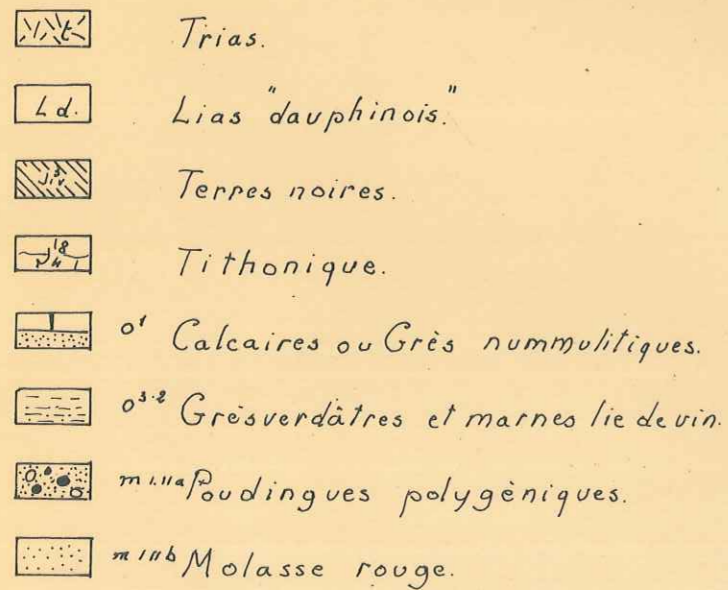 t Trias.
Ld. Lias "dauphinois."
Terres noires.
Tithonique.
o¹ Calcaires ou Grès nummulitiques.
o³⁻² Grès verdâtres et marnes lie de vin.
m I.IIa Poudingues polygèniques.
m IIb Molasse rouge.